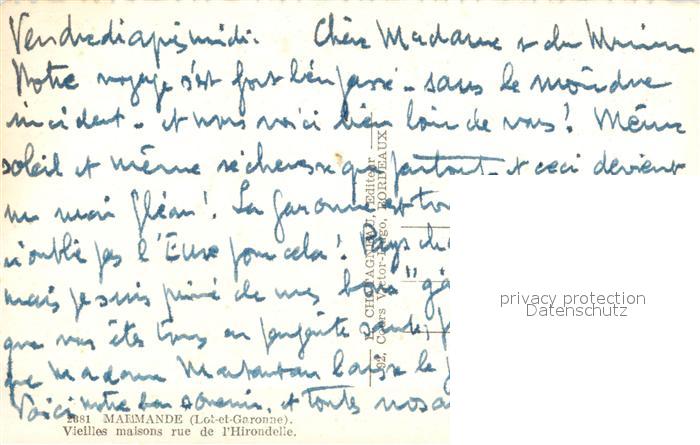 Vendredi après midi. Chère Madame & cher Monsieur
Notre voyage s'est fort bien passé - sans le moindre
incident - et nous voici bien loin de vous! Même
soleil et même sécheresse que partout - et ceci devient
un vrai fléau! La Garonne est
n'oublie pas l'Eure pour cela! Pays
mais je suis privé de mes bons "gâ
que vous êtes tous en parfaite santé,
que Madame laisse le
Voici notre bon souvenir, et toutes nos
E. CHATAGNEAU, Editeur
92, Cours Victor-Hugo, BORDEAUX
privacy protection
Datenschutz
2881 MARMANDE (Lot-et-Garonne).
Vieilles maisons rue de l'Hirondelle.